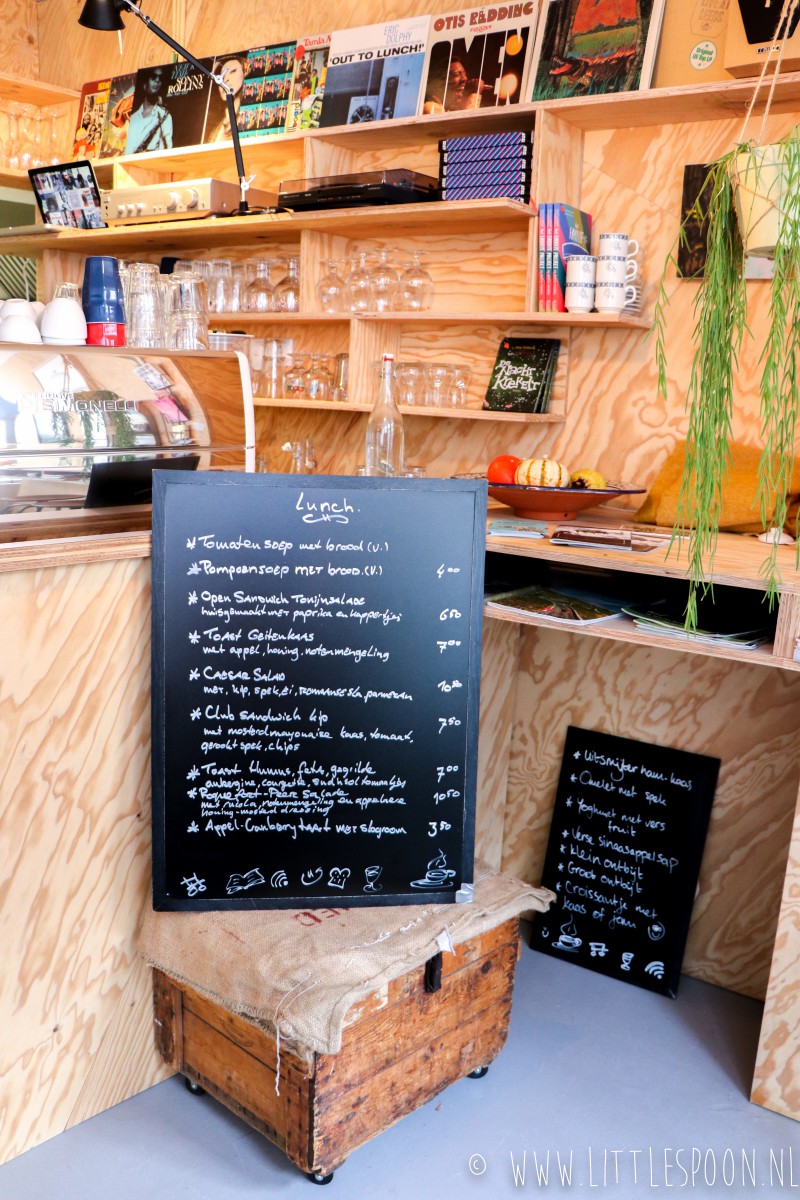 SONNY
ROLLINS
Tamla M
ERIC
DOLPHY
'OUT TO LUNCH!'
OTIS REDDING
SIMONELLI
de
Kracht
van
Kletskoek
Lunch.
* Tomaten soep met brood (v.)
* Pompoensoep met brood. (v.) 4.00
* Open Sandwich Tonijnsalade
huisgemaakt met paprika en kappertjes 6.50
* Toast Geitenkaas 7.00
met appel, honing, notenmengeling
* Caesar Salad
met, kip, spek, ei, romaanse sla, parmezan 10.50
* Club sandwich kip 7.50
met mosterdmayonaise kaas, tomaat,
gerookt spek, chips
* Toast Humus, feta, gegrilde 7.00
aubergine, courgette, sundried tomaatjes
* Roquefort-Peer Salade 10.50
met rucola, notenmengeling en appelsiene
honing-mosted dressing
* Appel-Cranberry taart met slagroom 3.50
* Uitsmijter ham-kaas
* Omelet met spek
* Yoghurt met vers
fruit
* Verse sinaasappelsap
* Klein ontbijt
* Groot ontbijt
* Croissantje met
kaas of jam
© WWW.LITTLESPOON.NL